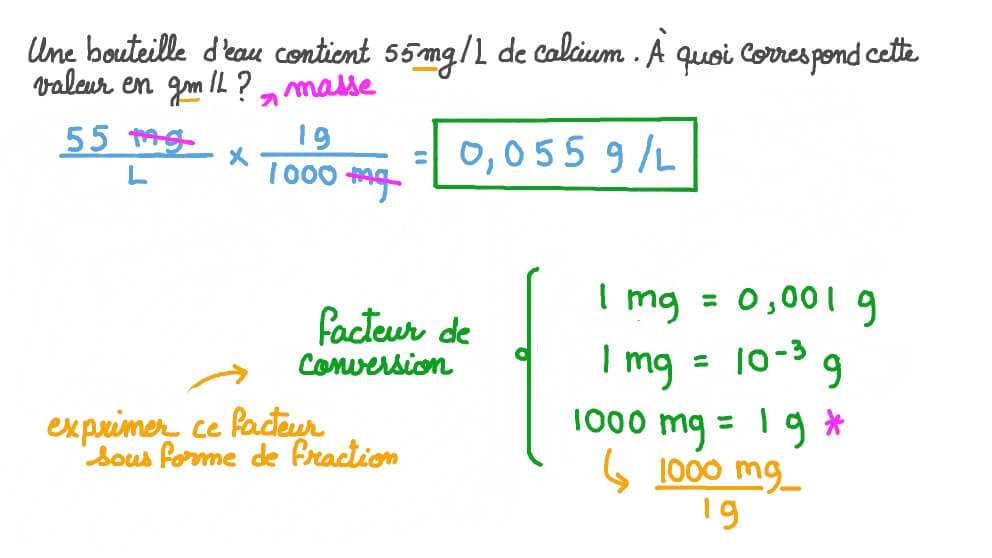 Une bouteille d'eau contient 55mg/L de calcium. À quoi correspond cette
valeur en gm/L? → masse
55 mg / L × 1g / 1000 mg = 0,055 g/L
1 mg = 0,001 g
facteur de
conversion
1 mg = 10⁻³ g
exprimer ce facteur
sous forme de fraction
1000 mg = 1 g *
1000 mg / 1g